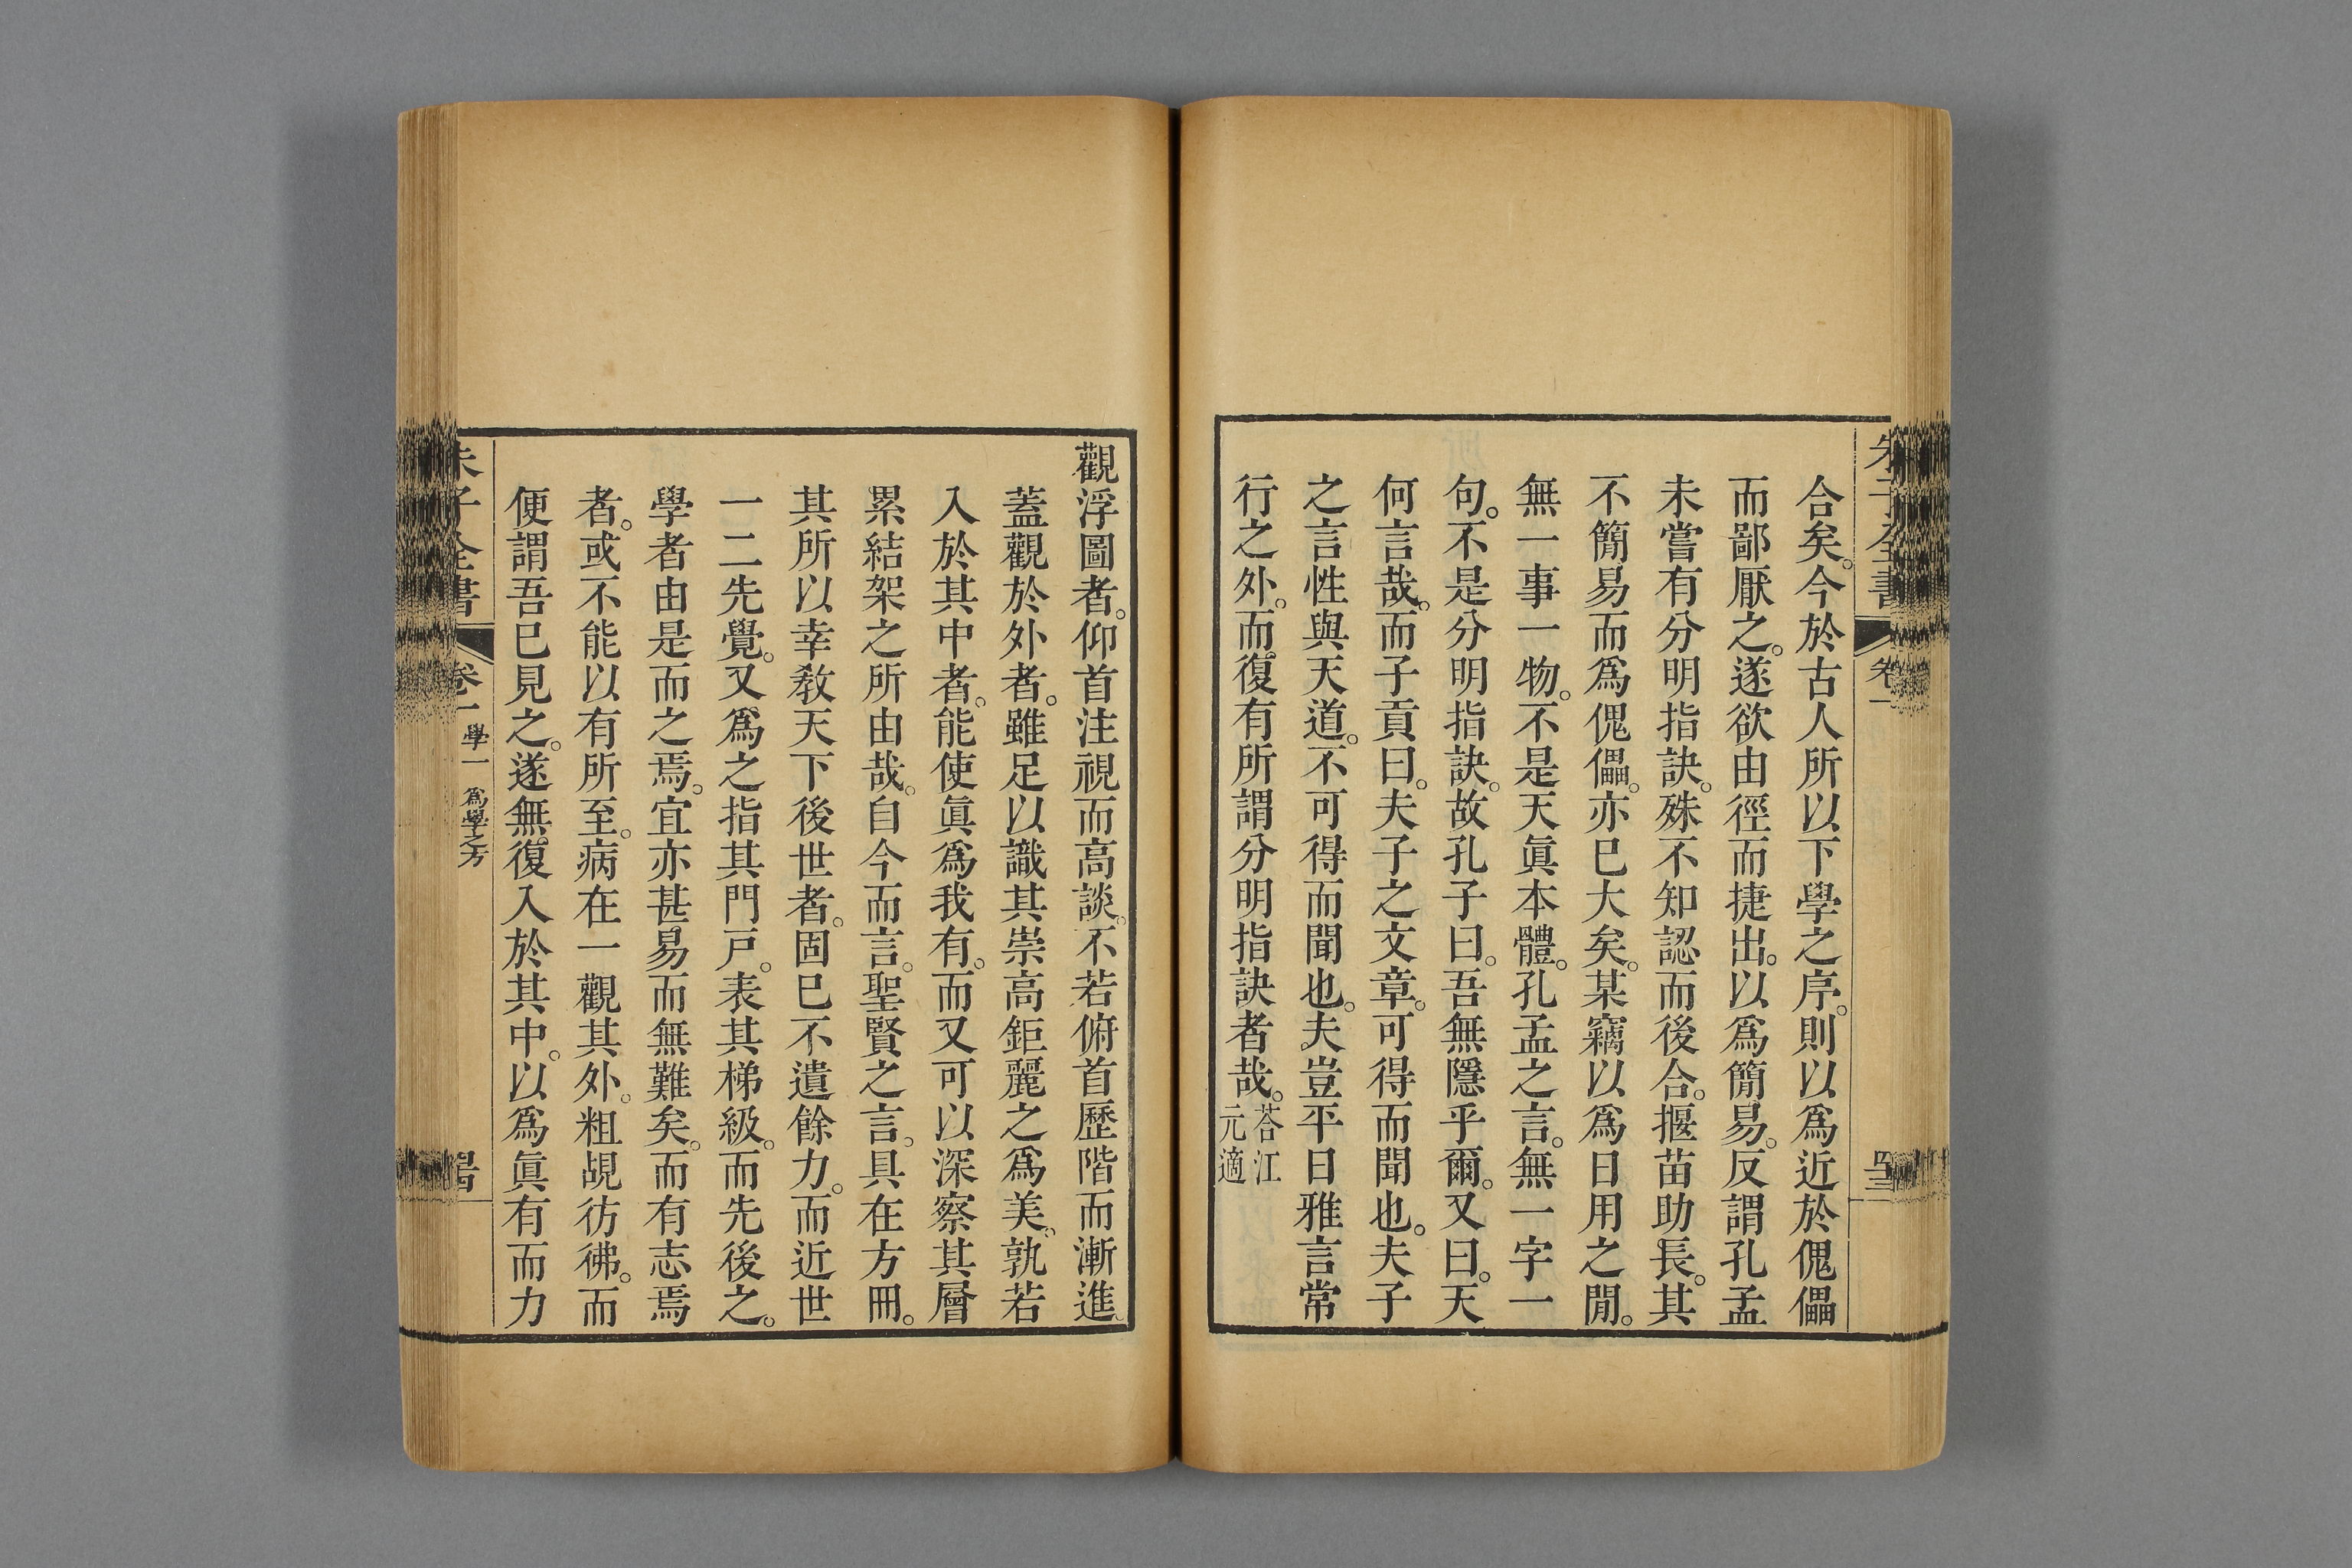 朱子全書 卷一
合矣。今於古人所以下學之序。則以爲近於傀儡
而鄙厭之。遂欲由徑而捷出。以爲簡易。反謂孔孟
未嘗有分明指訣。殊不知認而後合。揠苗助長。其
不簡易而爲傀儡。亦已大矣。某竊以爲日用之閒。
無一事一物。不是天眞本體。孔孟之言。無一字一
句。不是分明指訣。故孔子曰。吾無隱乎爾。又曰。天
何言哉。而子貢曰。夫子之文章。可得而聞也。夫子
之言性與天道。不可得而聞也。夫豈平日雅言常
行之外。而復有所謂分明指訣者哉。荅江元適
觀浮圖者。仰首注視而高談。不若俯首歷階而漸進。
蓋觀於外者。雖足以識其崇高鉅麗之爲美。孰若
入於其中者。能使眞爲我有。而又可以深察其層
累結架之所由哉。自今而言。聖賢之言。具在方冊。
其所以幸敎天下後世者。固已不遺餘力。而近世
一二先覺。又爲之指其門戸。表其梯級。而先後之。
學者由是而之焉。宜亦甚易而無難矣。而有志焉
者。或不能以有所至。病在一觀其外。粗覘彷彿。而
便謂吾已見之。遂無復入於其中。以爲眞有而力
朱子全書 卷一 學一 爲學之方